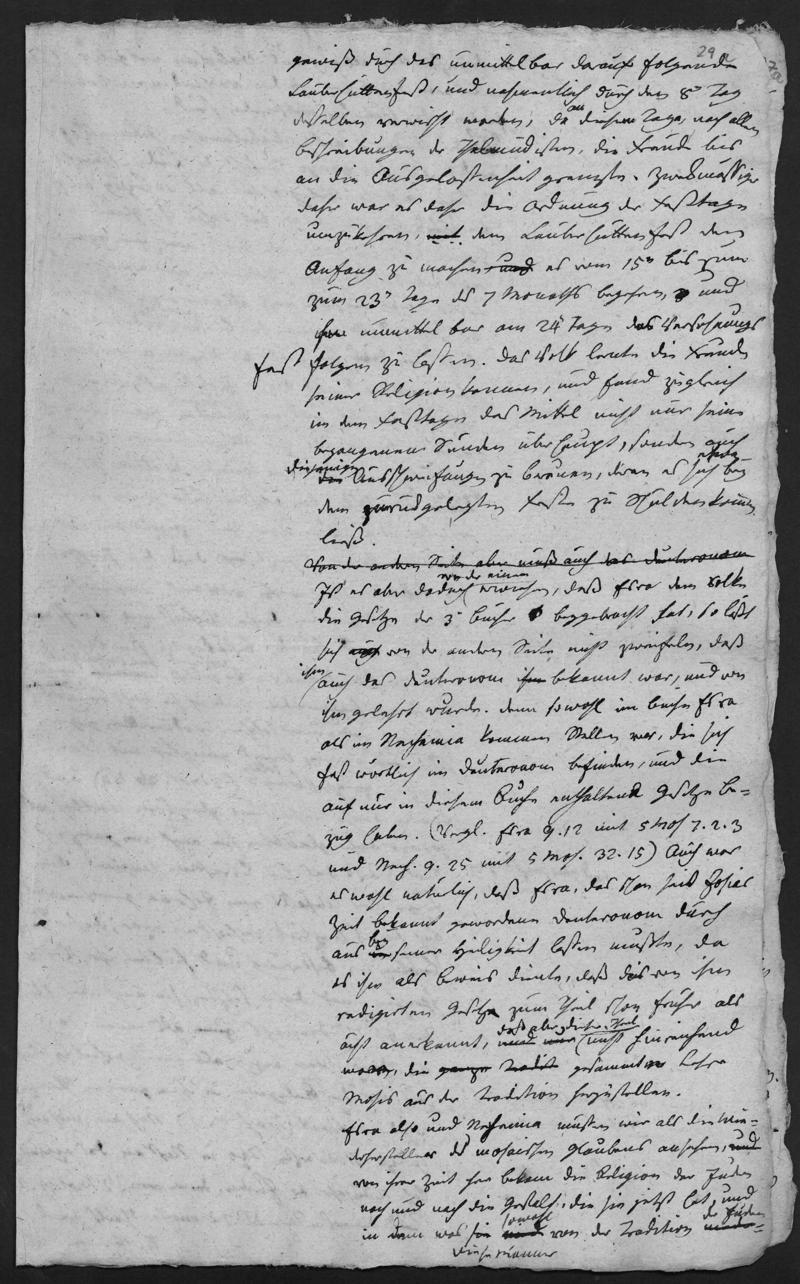 29
gewiß durch das unmittelbar darauf folgende
Laubhüttenfest, und namentlich durch den 8n Tag
desselben verwischt worden, da an diesem Tage, nach allen
Beschreibungen der Thalmudisten, die Freude bis
an die Ausgelassenheit grenzte. Zweckmässiger
daher war es daher die Ordnung der Festtage
umzukehren, mit dem Laubhüttenfest den
Anfang zu machen und es vom 15n bis zum
zum 23n Tage des 7 Monaths begehen, und
unmittelbar am 24 Tage das Versöhnungs
fest folgen zu lassen. Das Volk lernte die Freude
seiner Religion kennen, und fand zugleich
in dem Festtage das Mittel nicht nur seine
begangenen Sünden überhaupt, sondern auch
diejenigen Ausschweifungen zu bereuen, deren es sich etwa bey
dem zurückgelegten Feste zu Schulden kommen
ließ.
Von der andern Seite aber muß auch das Deuteronom
Ist es aber dadurch von der einen erwiesen, daß Esra dem Volke
die Gesetze der 3 Bücher beygebracht hat, so läßt
sich auch von der andern Seite nicht zweifeln, daß
ihm auch das Deuteronom ihm bekannt war, und von
ihm gelehrt wurde. denn sowohl im Buche Esra
als im Nechemia kommen Stellen vor, die sich
fast wörtlich im Deuteronom befinden, und die
auf nur in diesem Buche enthaltene Gesetze Be=
zug haben. (Vergl. Esra 9.12 mit 5 Mos 7.2.3
und Nech. 9.25 mit 5 Mos. 32.15) Auch war
es wohl natürlich, daß Esra, das schon seit Josias
Zeit bekannt gewordene Deuteronom durch
aus bey seiner Heiligkeit lassen mußte, da
es ihm als Beweis diente, daß das von ihm
redigirten Gesetze zum Theil schon früher als
ächt anerkannt, daß aber dieser Theil nicht hinreichend
war, die ganze Tradit gesammten Lehre
Mosis aus der Tradition herzustellen.
Esra also und Nechemia müssen wir als die Wie=
derhersteller des mosaischen Glaubens ansehen, und
von ihrer Zeit her bekam die Religion der Juden
nach und nach die Gestalt, die sie jetzt hat, und
in dem was sowohl von der Tradition der Juden
diese Männer